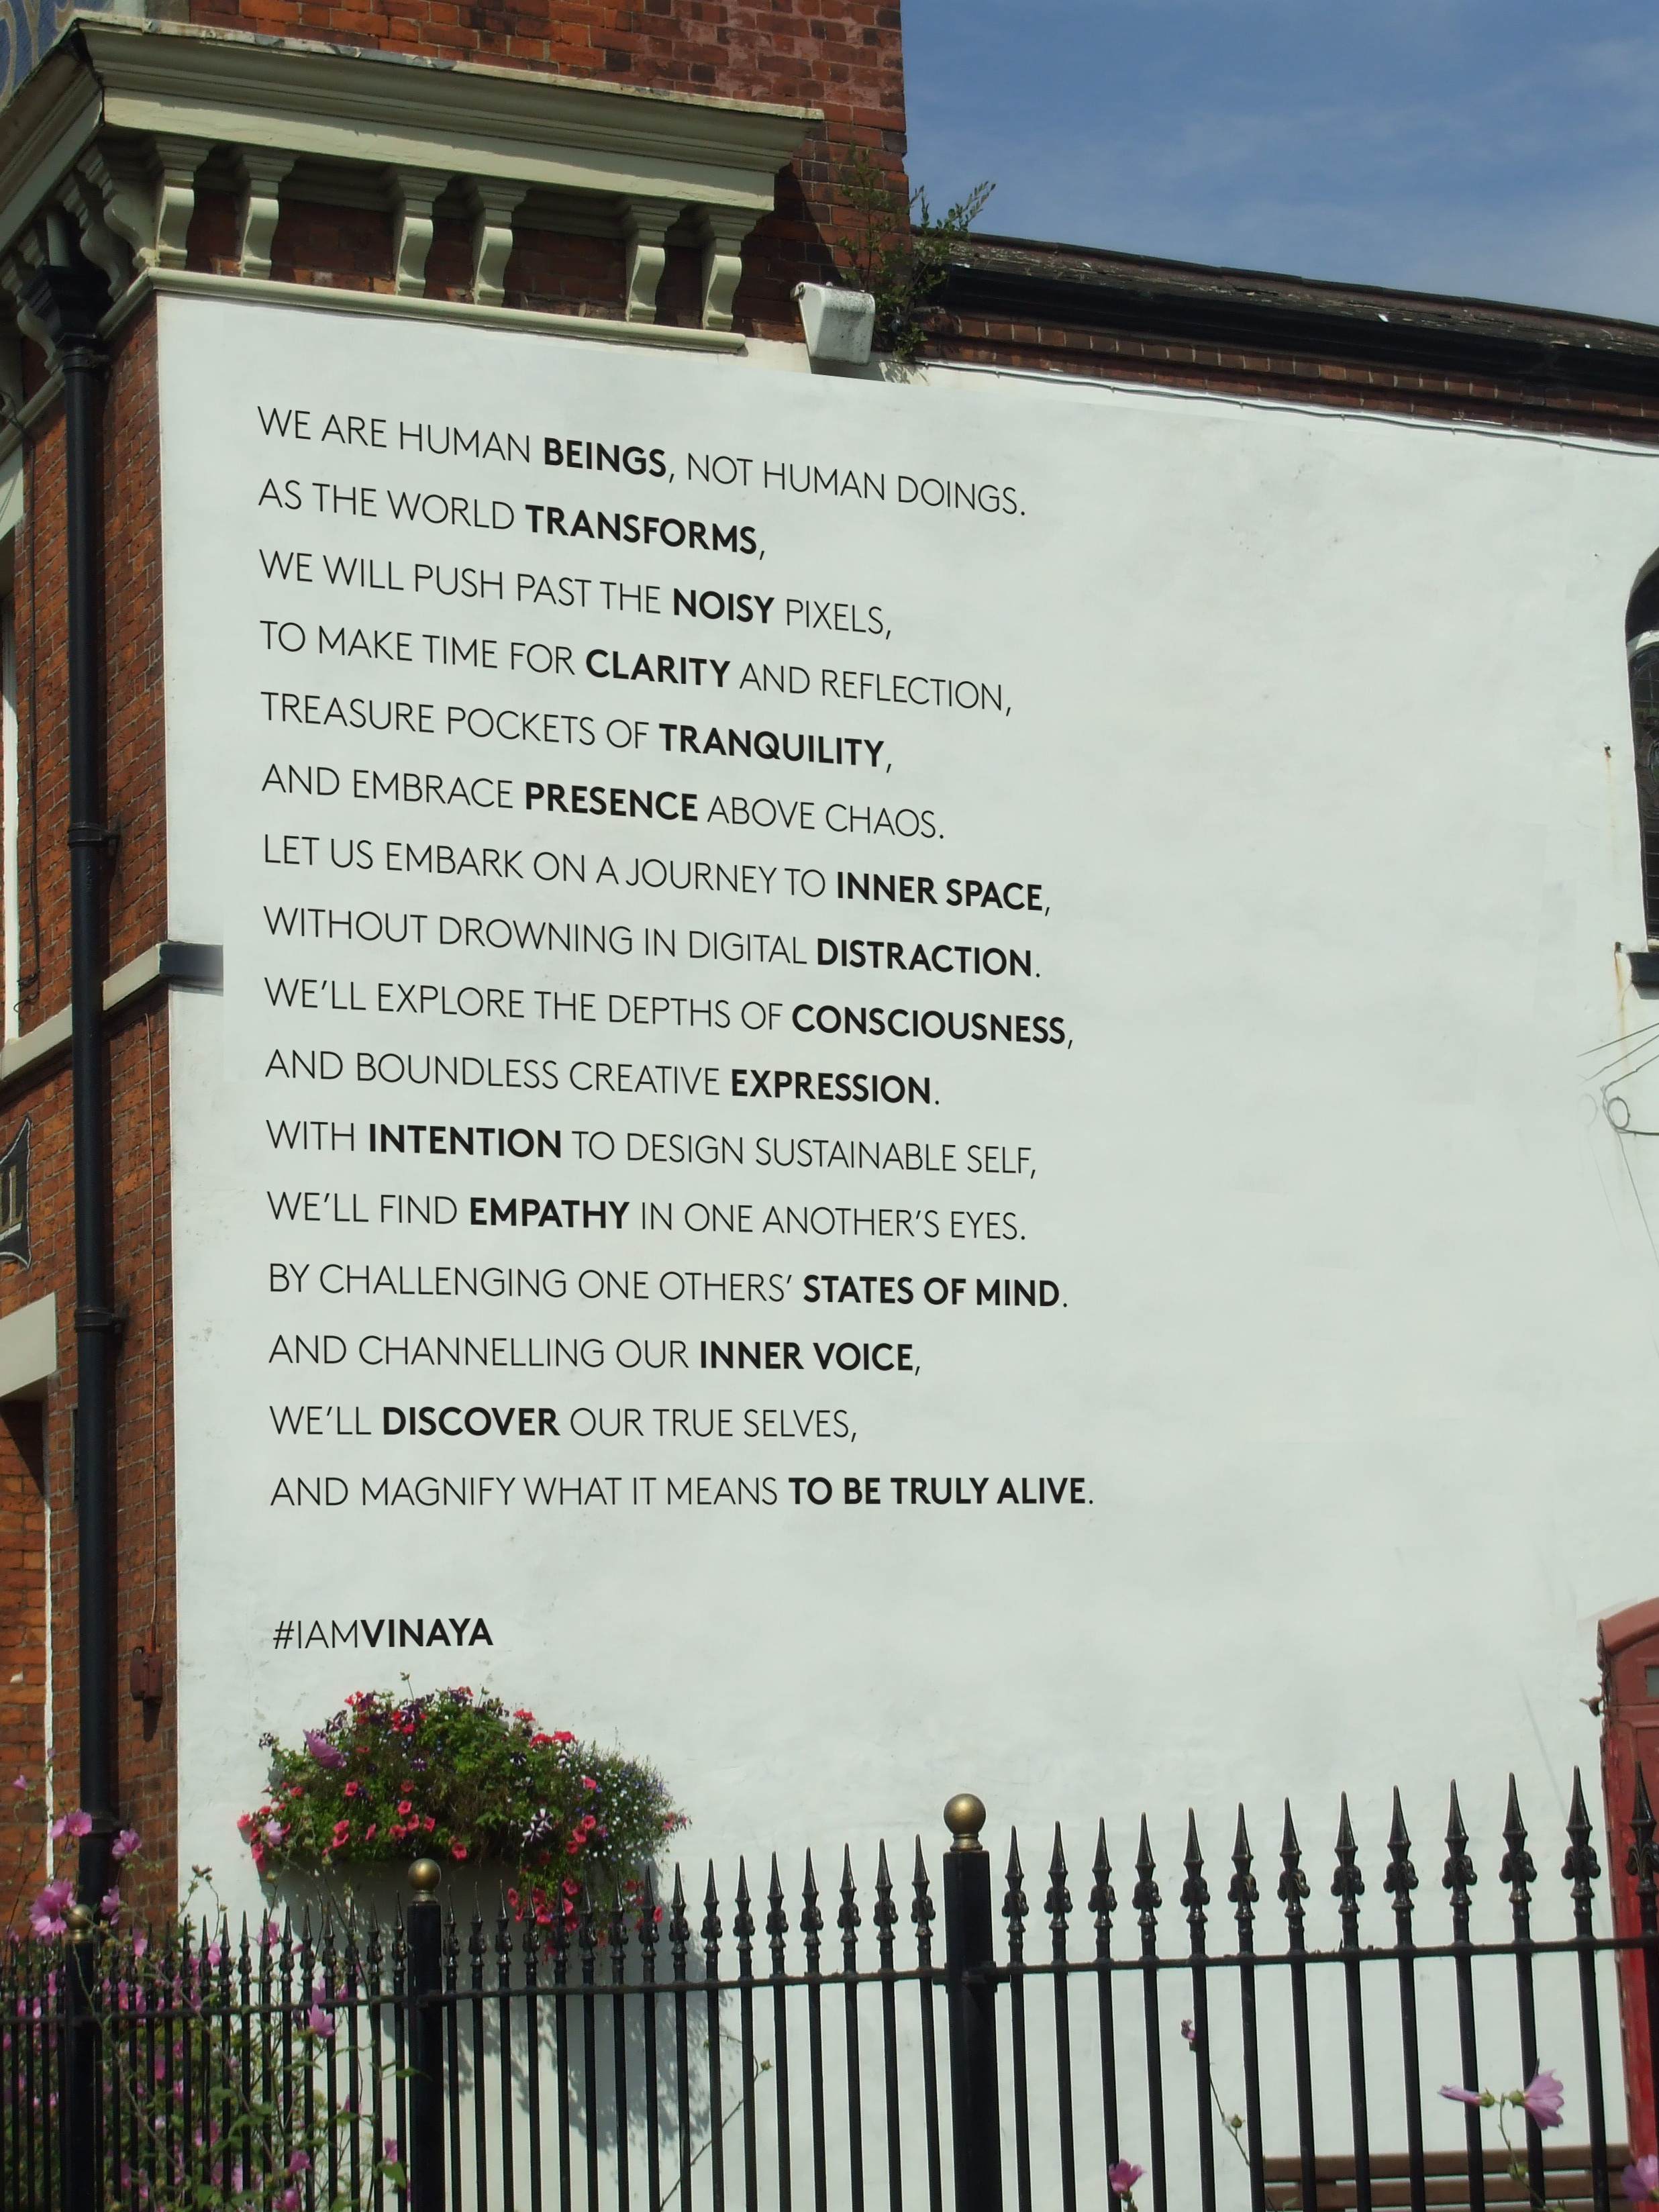 WE ARE HUMAN BEINGS, NOT HUMAN DOINGS.
AS THE WORLD TRANSFORMS,
WE WILL PUSH PAST THE NOISY PIXELS,
TO MAKE TIME FOR CLARITY AND REFLECTION,
TREASURE POCKETS OF TRANQUILITY,
AND EMBRACE PRESENCE ABOVE CHAOS.
LET US EMBARK ON A JOURNEY TO INNER SPACE,
WITHOUT DROWNING IN DIGITAL DISTRACTION.
WE'LL EXPLORE THE DEPTHS OF CONSCIOUSNESS,
AND BOUNDLESS CREATIVE EXPRESSION.
WITH INTENTION TO DESIGN SUSTAINABLE SELF,
WE'LL FIND EMPATHY IN ONE ANOTHER'S EYES.
BY CHALLENGING ONE OTHERS' STATES OF MIND.
AND CHANNELLING OUR INNER VOICE,
WE'LL DISCOVER OUR TRUE SELVES,
AND MAGNIFY WHAT IT MEANS TO BE TRULY ALIVE.
#IAMVINAYA